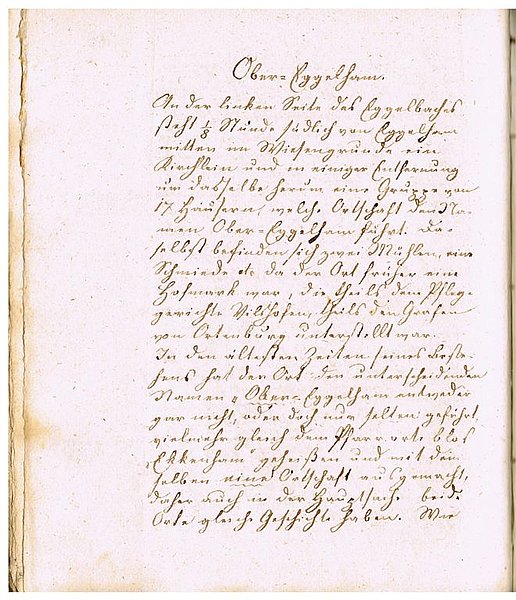 Ober-Eggelham.
An der linken Seite des Eggelbaches
steht 1/8 Stunde südlich von Eggelham
mitten im Wiesengrunde ein
Kirchlein und in einiger Entfernung
um dasselbe herum eine Gruppe von
17 Häusern, welche Ortschaft den Na-
men Ober-Eggelham führt. Da-
selbst befinden sich zwei Mühlen, eine
Schmiede etc da der Ort früher eine
Hofmark war, die theils dem Pfleg-
gerichte Vilshofen, theils den Grafen
von Ortenburg unterstellt war.
In den ältesten Zeiten seines Beste-
hens hat der Ort den unterscheidenden
Namen "Ober-Eggelham entweder
gar nicht, oder doch nur selten geführt,
vielmehr gleich dem Pfarrorte blos
"Ekkenham" geheißen und mit dem-
selben eine Ortschaft ausgemacht,
daher auch in der Hauptsache beide
Orte gleiche Geschichte haben. Wie